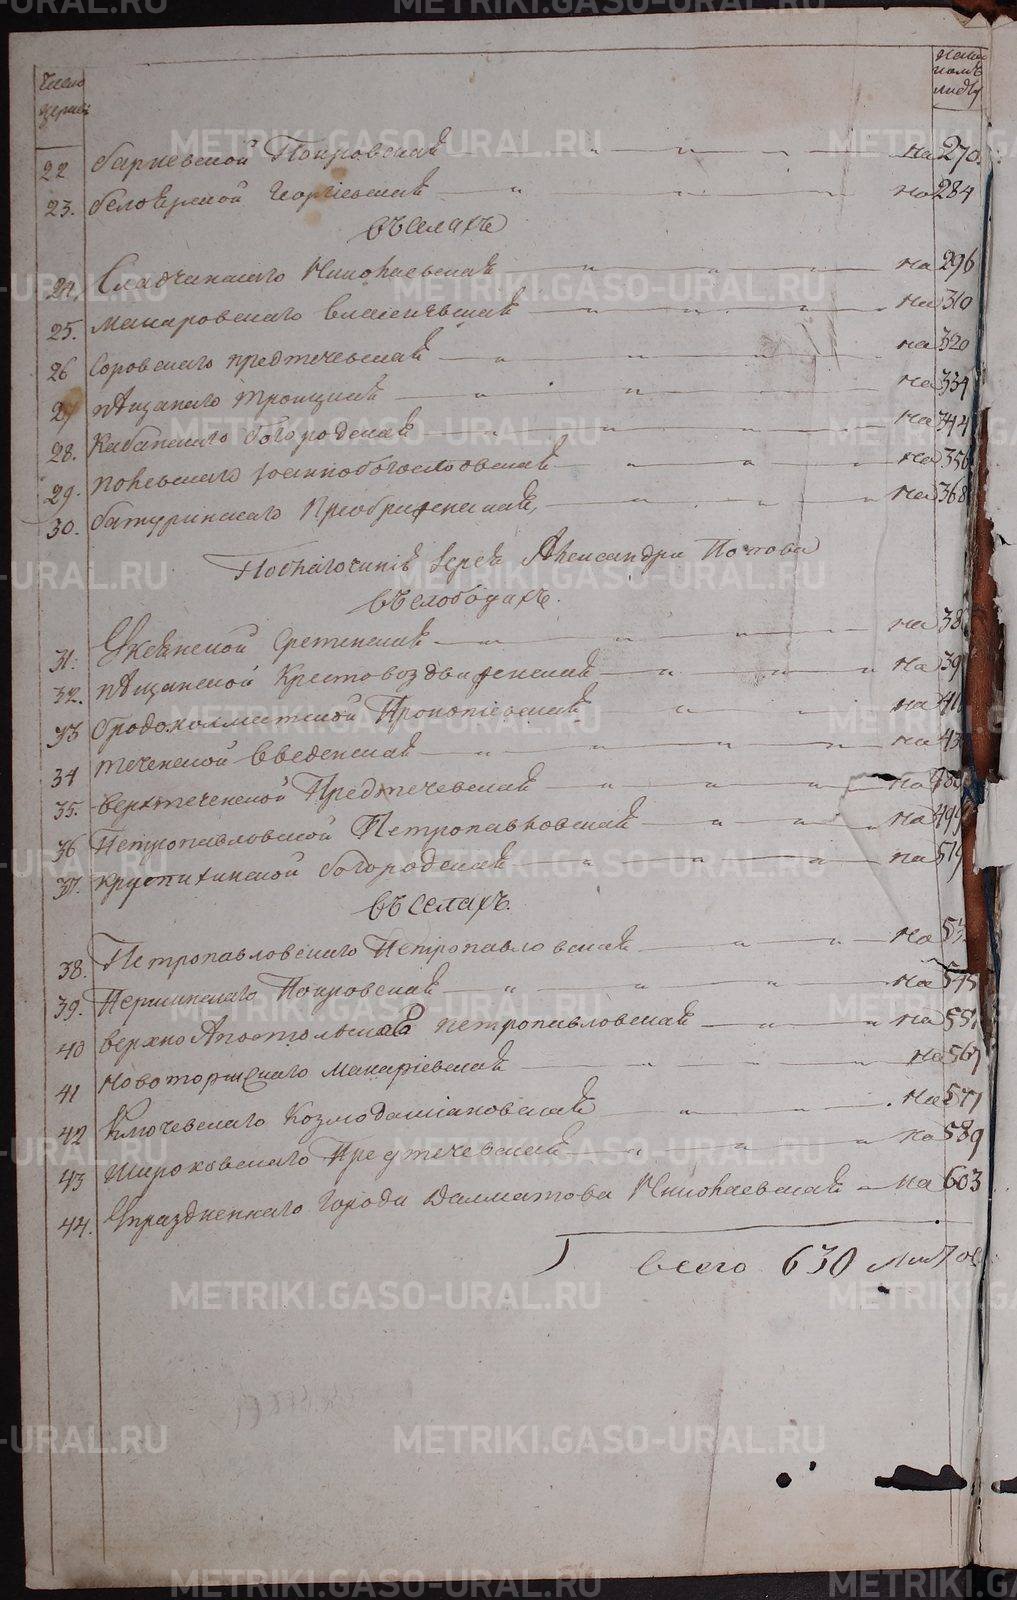 Число церквей
На коемъ листу
22 Барневской Покровской — на 270.
23. Белоярской Георгіевской — на 284
Въ селахъ
24. Сладчанскаго Николаевской — на 296
25. Макаровскаго Власіевской — на 310
26 Соровскаго Предтечевской — на 320
27 Пѣщанаго Троицкой — на 334
28. Кабанскаго Богородской — на 344
29. Иоанобогословской — на 356
30. Батуринскаго Преображенской, — на 368
По благочинію Іерея Александра Попова
Въ слободахъ.
31. Уксянской Срѣтенской — на 38
32. Пѣщанской Крестовоздвиженской — на 39
33 Бродокалматской Прокопіевской — на 41
34 Теченской Введенской — на 43
35. Верхтеченской Предтечевской — на 48
36 Петропавловской Петропавловской — на 499
37. Крутихинской Богородской — на 519
Въ селахъ.
38. Петропавловскаго Петропавловской — на 53
39. Першинскаго Покровской — на 545
40 Верхно Петропавловской — на 557
41 Новоторжскаго Макаріевской — на 567
42 Ключевскаго Козмодаміановской — на 577
43 Широковскаго Предтечевской — на 589
44. Упраздненнаго Города Далматова Николаевской — на 603
Всего 630 листов
METRIKI.GASO-URAL.RU